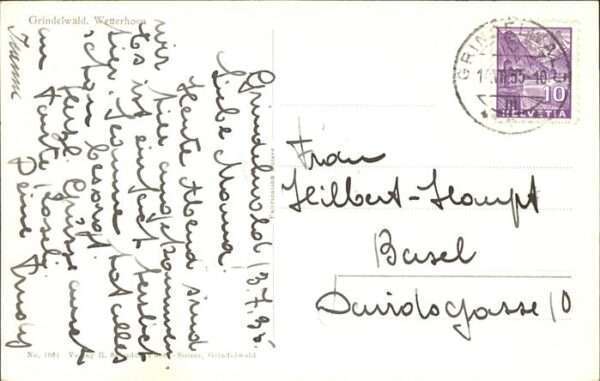 Grindelwald. Wetterhorn
Grindelwald, 13.7.35
Liebe Mama!
Heute Abend sind
wir hier angekommen.
Es ist einfach herrlich
hier. Jeanne hat alles
schon besorgt.
Herzl. Grüsse auch
an Tante
Deine Trudy
GRINDELWALD
10
HELVETIA
Frau
Hilbert-Haupt
Basel
Davidsgasse 10
Grindelwald